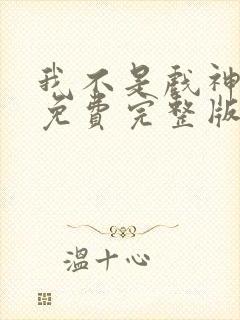 我不是戲神
免費完整版
溫十心